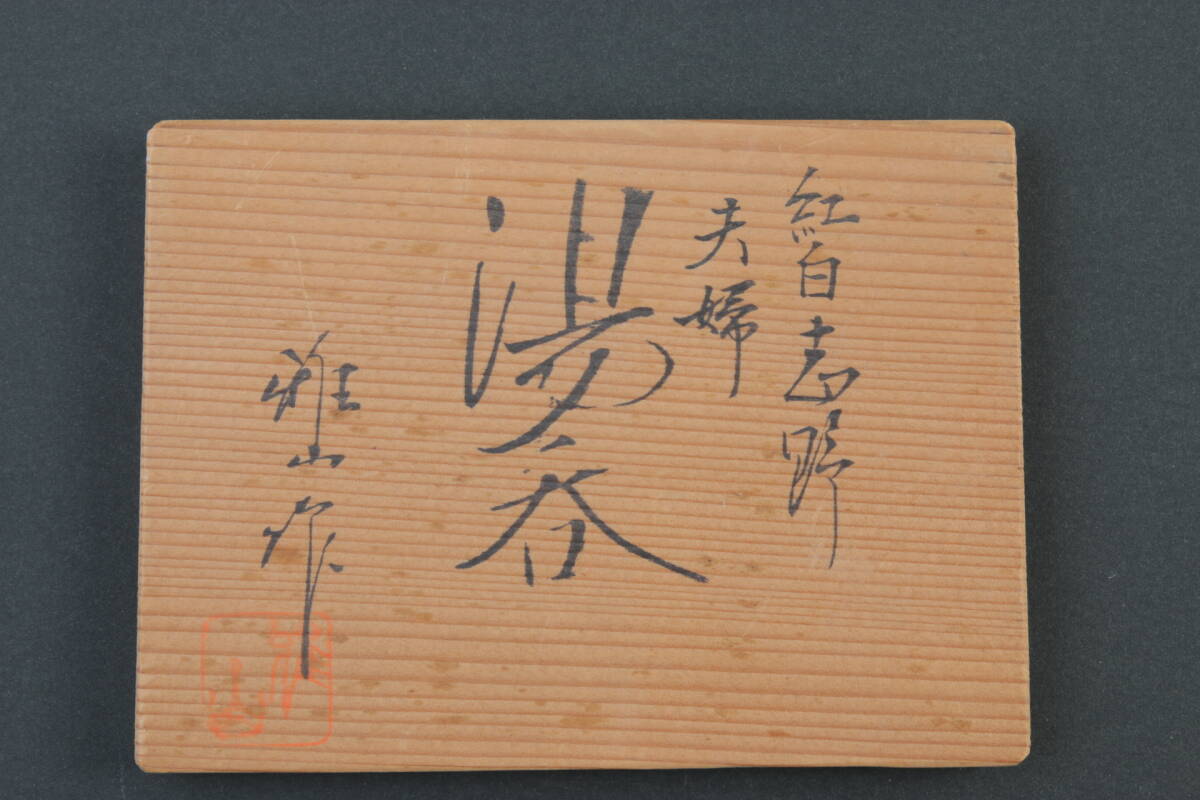 紅白志野
夫婦
湯呑
雅山作